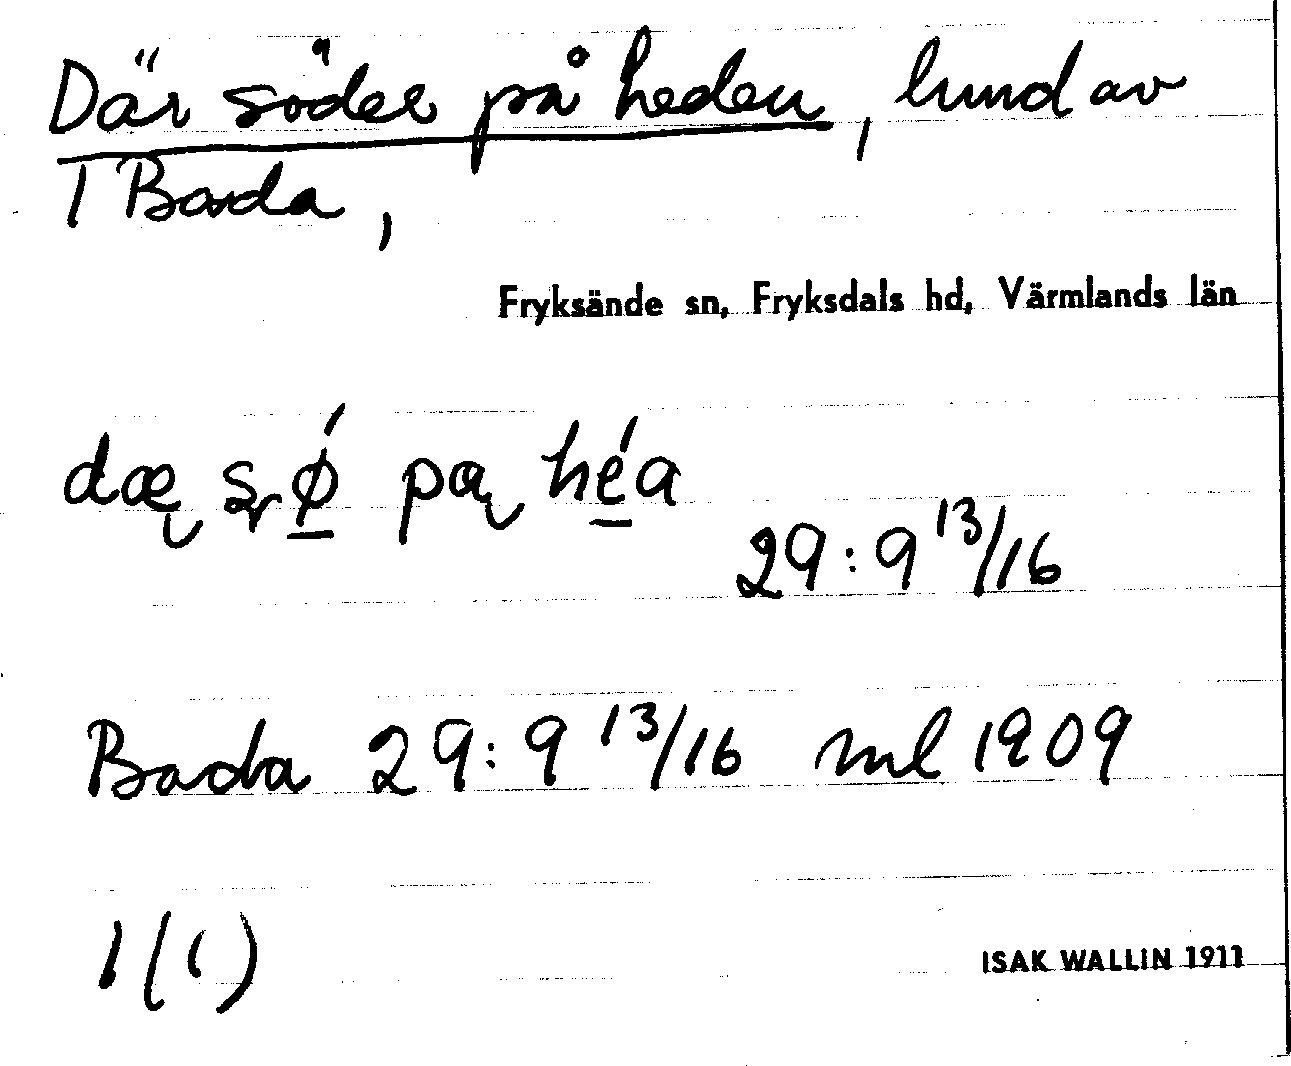 Där söder på heden, lund av
1 Bada,
Fryksände sn, Fryksdals hd, Värmlands län
dæ̨ sǿ̠ pą hé̠a
29:9 13/16
Bada 29:9 13/16 ml 1909
1(1)
ISAK WALLIN 1911